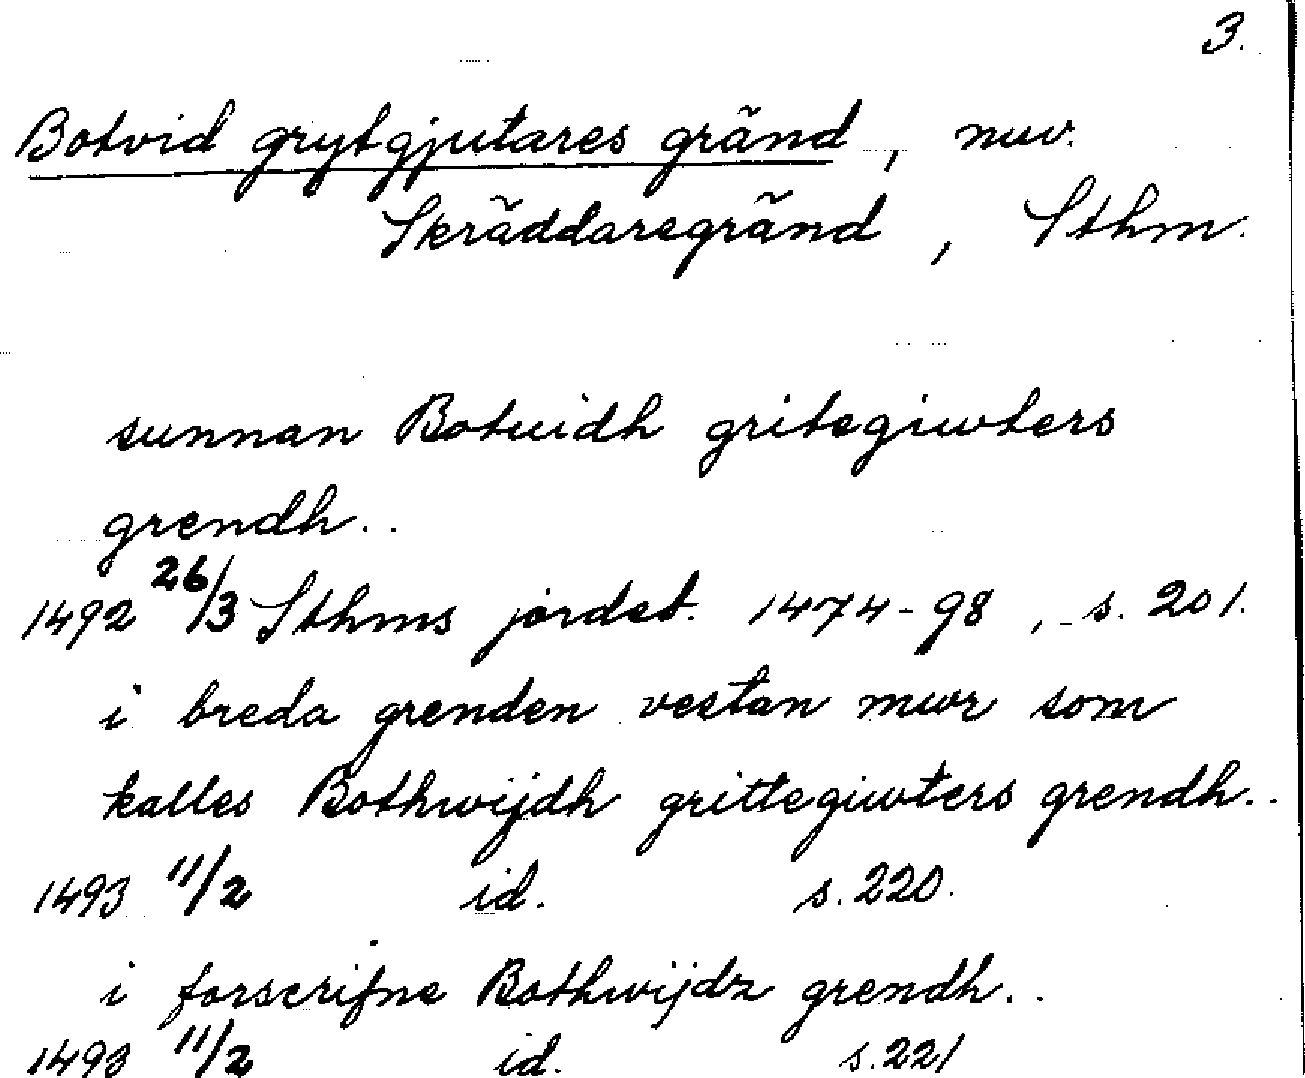 3.
Botvid grytgjutares gränd, nuv.
Skräddaregränd, Sthm.
sunnan Botuidh gritegiwters
grendh..
1492 26/3 Sthms jordeb. 1474-98, s. 201.
i breda grenden vestan mwr som
kalles Bothwijdh grittegiwters grendh..
1493 11/2 id. s. 220.
i forscrifne Bothwijdz grendh..
1493 11/2 id. s. 221